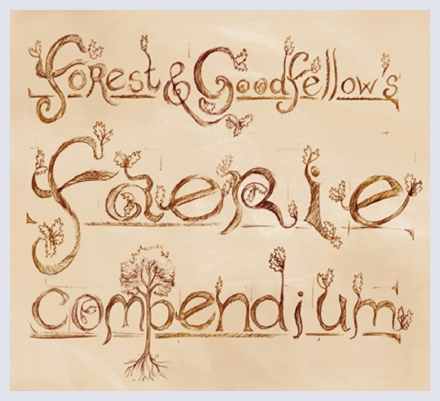 Forest & Goodfellow's
faerie
compendium